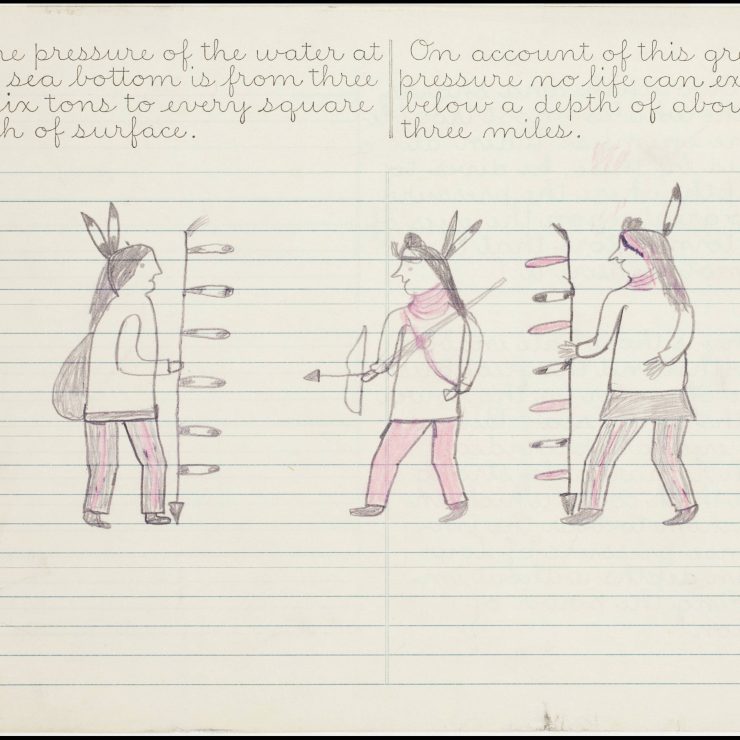 he pressure of the water at
sea bottom is from three
ix tons to every square
h of surface.
On account of this gre
pressure no life can ex
below a depth of abou
three miles.